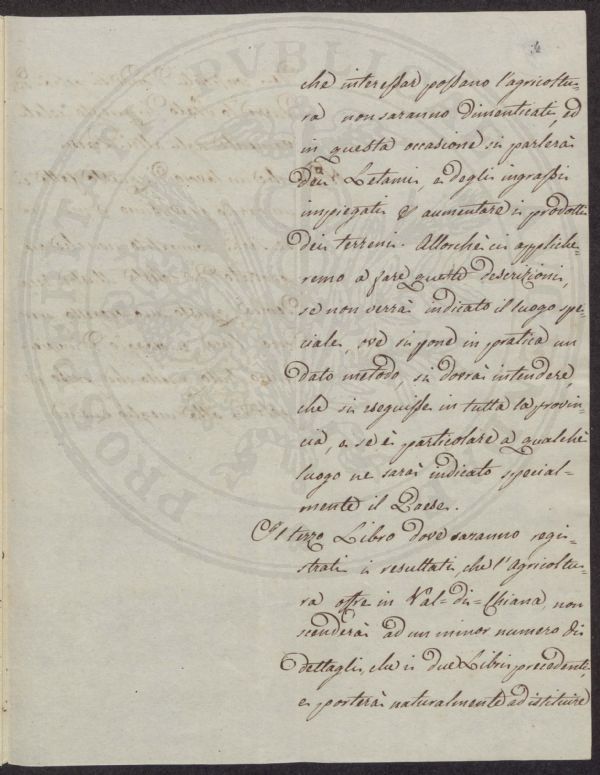 che interessar possano l'agricoltu=
ra non saranno dimenticati, ed
in questa occasione si parlerà
dei Letami, e degli ingrassi
impiegati p aumentare i prodotti
dei terreni. Allorchè ci appliche=
remo a fare queste descrizioni,
se non verrà indicato il luogo spe=
ciale, ove si pone in pratica un
dato metodo, si dovrà intendere,
che si eseguisse in tutta la provin=
cia, e se è particolare a qualche
luogo ne sarà indicato special=
mente il Paese.
Il terzo Libro dove saranno regi=
strati i resultati, che l'Agricoltu=
ra offre in Val=di=Chiana, non
scenderà ad un minor numero di
dettagli, che i due Libri precedenti,
e porterà naturalmente ad istituire